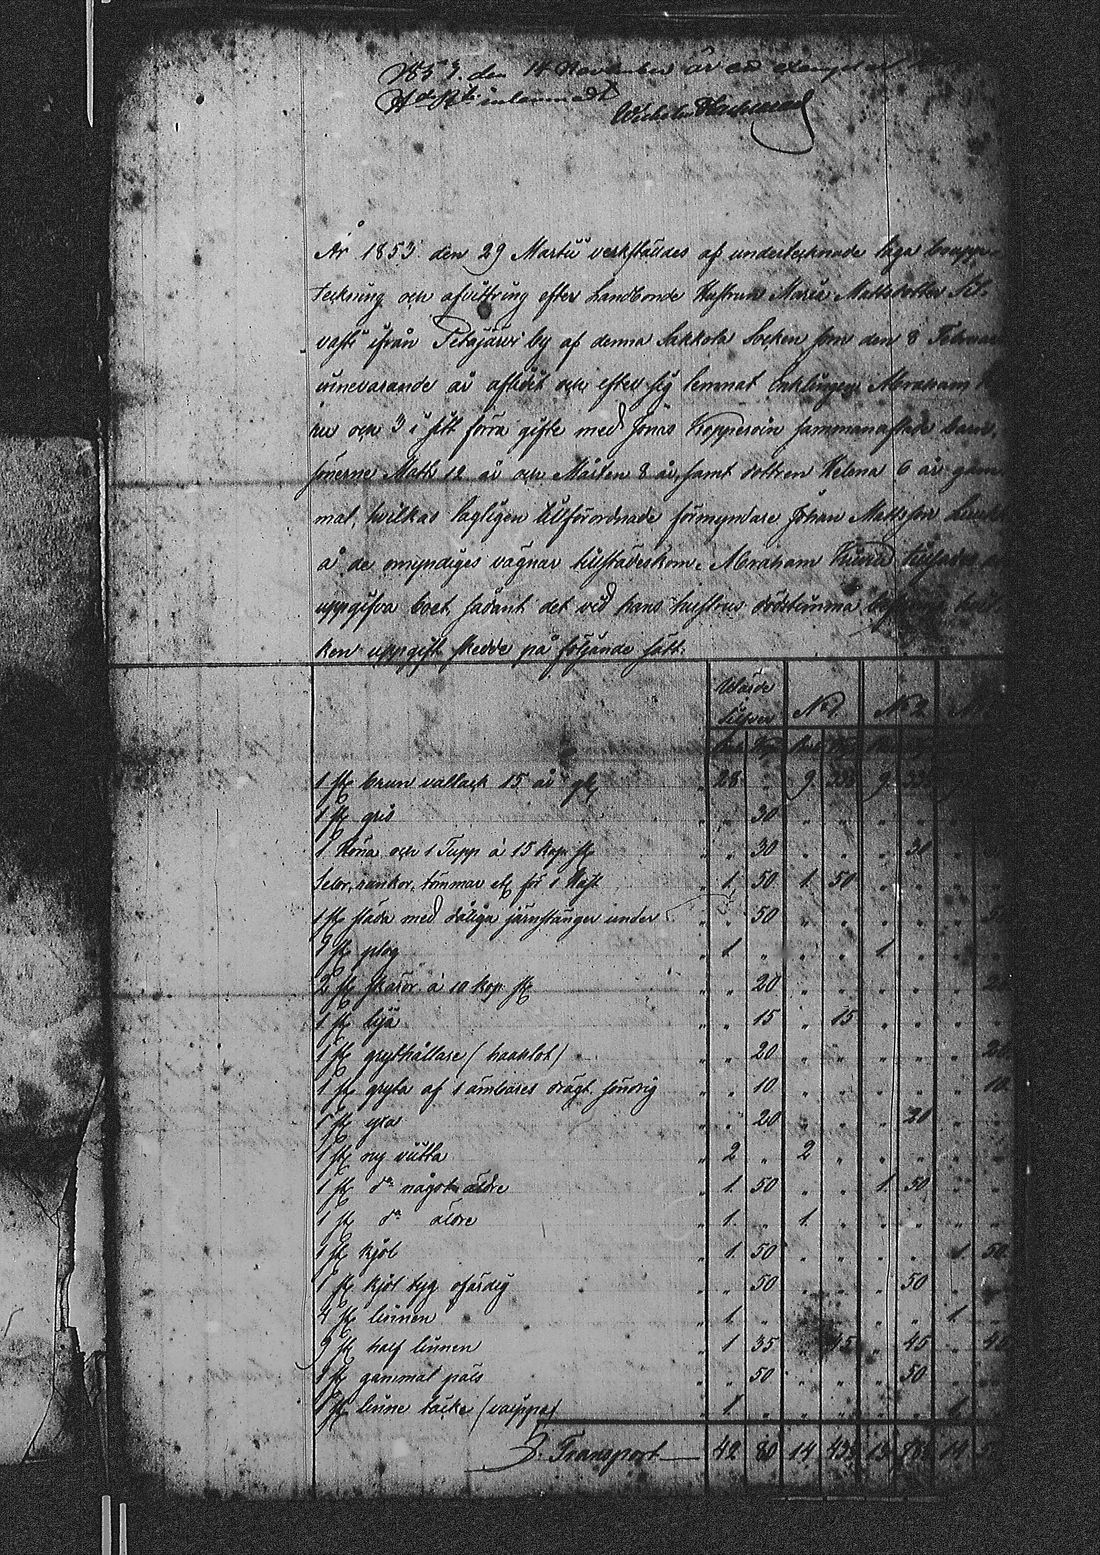 1853 den 14 November är ett exemplar
inlemnadt
Wilhelm
År 1853 den 29 Martii verkställdes af undertecknade laga boupp-
teckning och afvittring efter Landbonde Hustrun Maria Mattsdotter
ifrån Petäjärvi by af denna Sakkola Socken som den 8 Februari
innevarande år aflidit och efter sig lemnat Enklingen Abraham
och 3 i sitt förra gifte med Jonas Kopperoin sammanaflade barn,
sönerne Matts 12 år och Mårten 8 år, samt dottren Helena 6 år gam-
mal, hvilkas lagligen tillförordnade förmyndare Johan Mattsson
å de omyndiges vägnar tillstädeskom. Abraham
uppgifva boet sådant det vid hans hustrus dödstimma befanns hvil-
ken uppgift skedde på följande sätt.
Wärde Silfver No 1 No 2 N
Rub. Kop. Rub. Kop.
1 st brun vallack 15 år gl " 28 " 9 9
1 st gris " " 30 " " " "
1 höna och 1 Tupp à 15 kop. st " " 30 " " " 30
Selor, rankor, tömmar etc för 1 häst " 1 50 1 50 " "
1 st släda med dåliga järnstänger under " " 50 " " " "
1 st plog " 1 " " " 1 "
2 st skäror à 10 kop. st " " 20 " " " " " 20
1 st lija " " 15 " 15 " " " "
1 st grythållare (haaklot) " " 20 " " " " " 20
1 st gryta af 1 ämbares drägt sönrig " " 10 " " " " " 10
1 st yxa " " 20 " " " 20 " "
1 st ny viitta " 2 " 2 " " " " "
1 st do något äldre " 1 50 " " 1 50 " "
1 st do äldre " 1 " 1 " " " " "
1 st kjol " 1 50 " " " " 1 50
1 st kjol tyg ofärdig " " 50 " " " 50 " "
4 st linnen " 1 " " " " " 1 "
9 st half linnen " 1 35 " 45 " 45 " 45
1 st gammal päls " " 50 " " " 50 " "
1 st linne täcke (vaippa) " 1 " " " " " 1 "
Transport 42 80 14 13 14